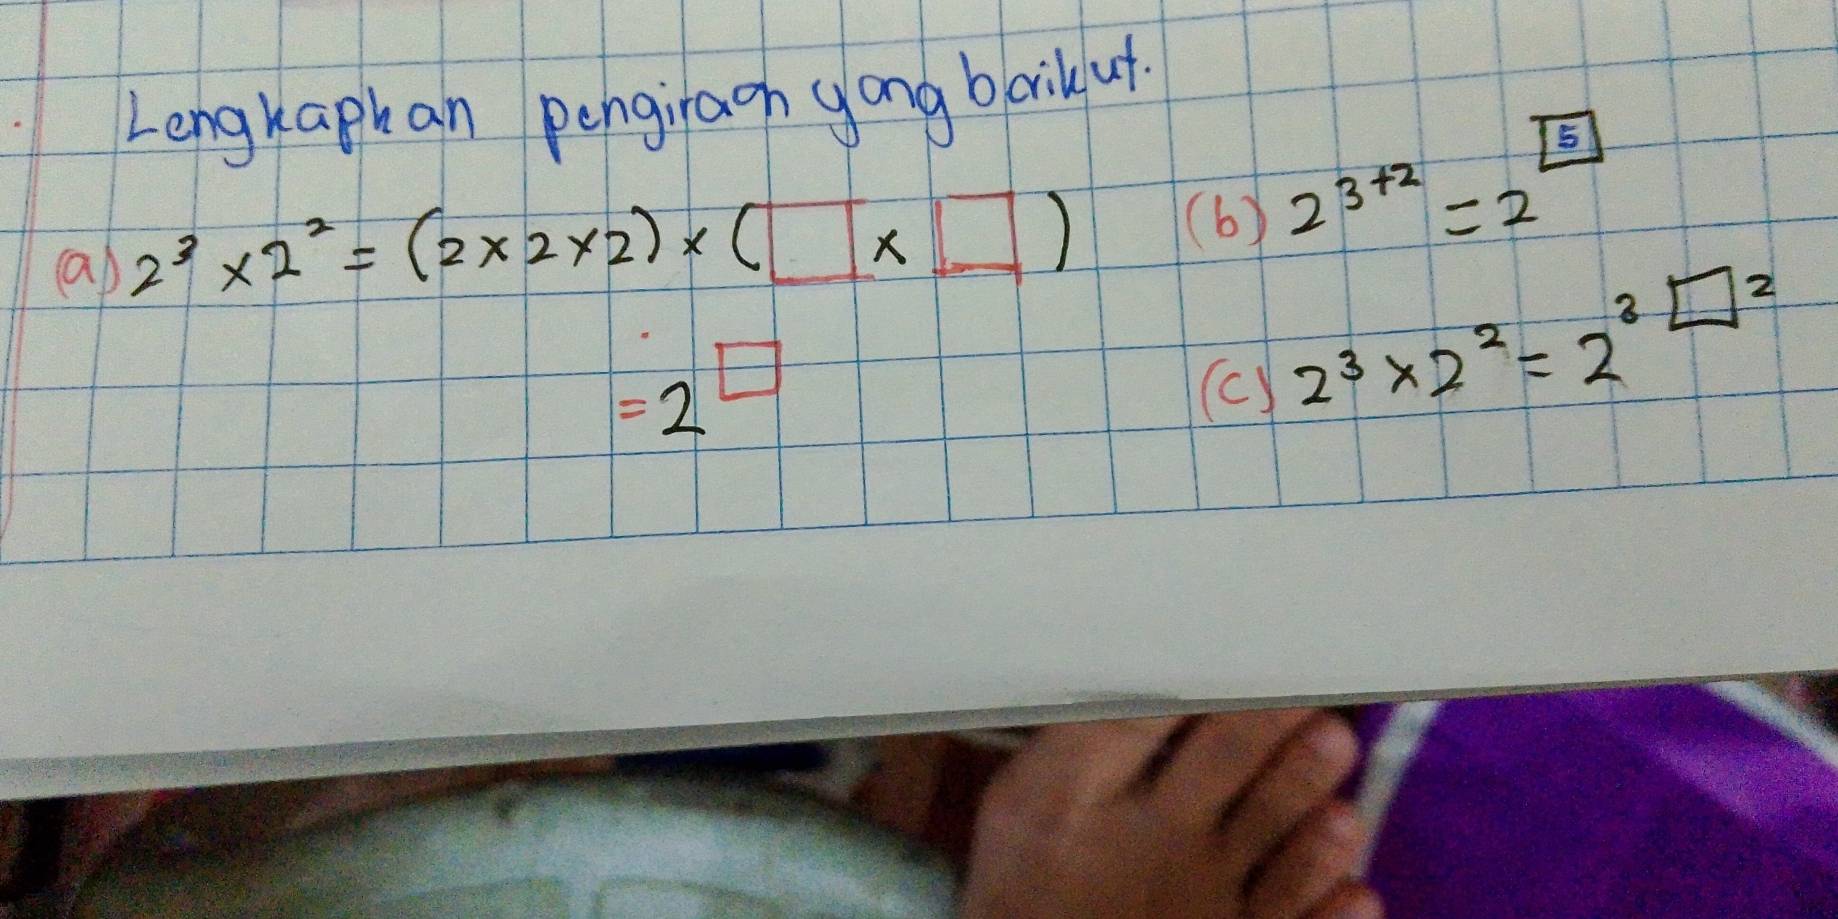 Lengkapkan pengiraan yang berikut.
(a) 2³ × 2² = (2 × 2 × 2) × (□ × □)
= 2^□
(b) 2³⁺² = 2^[5]
(c) 2³ × 2² = 2^(3 □ 2)